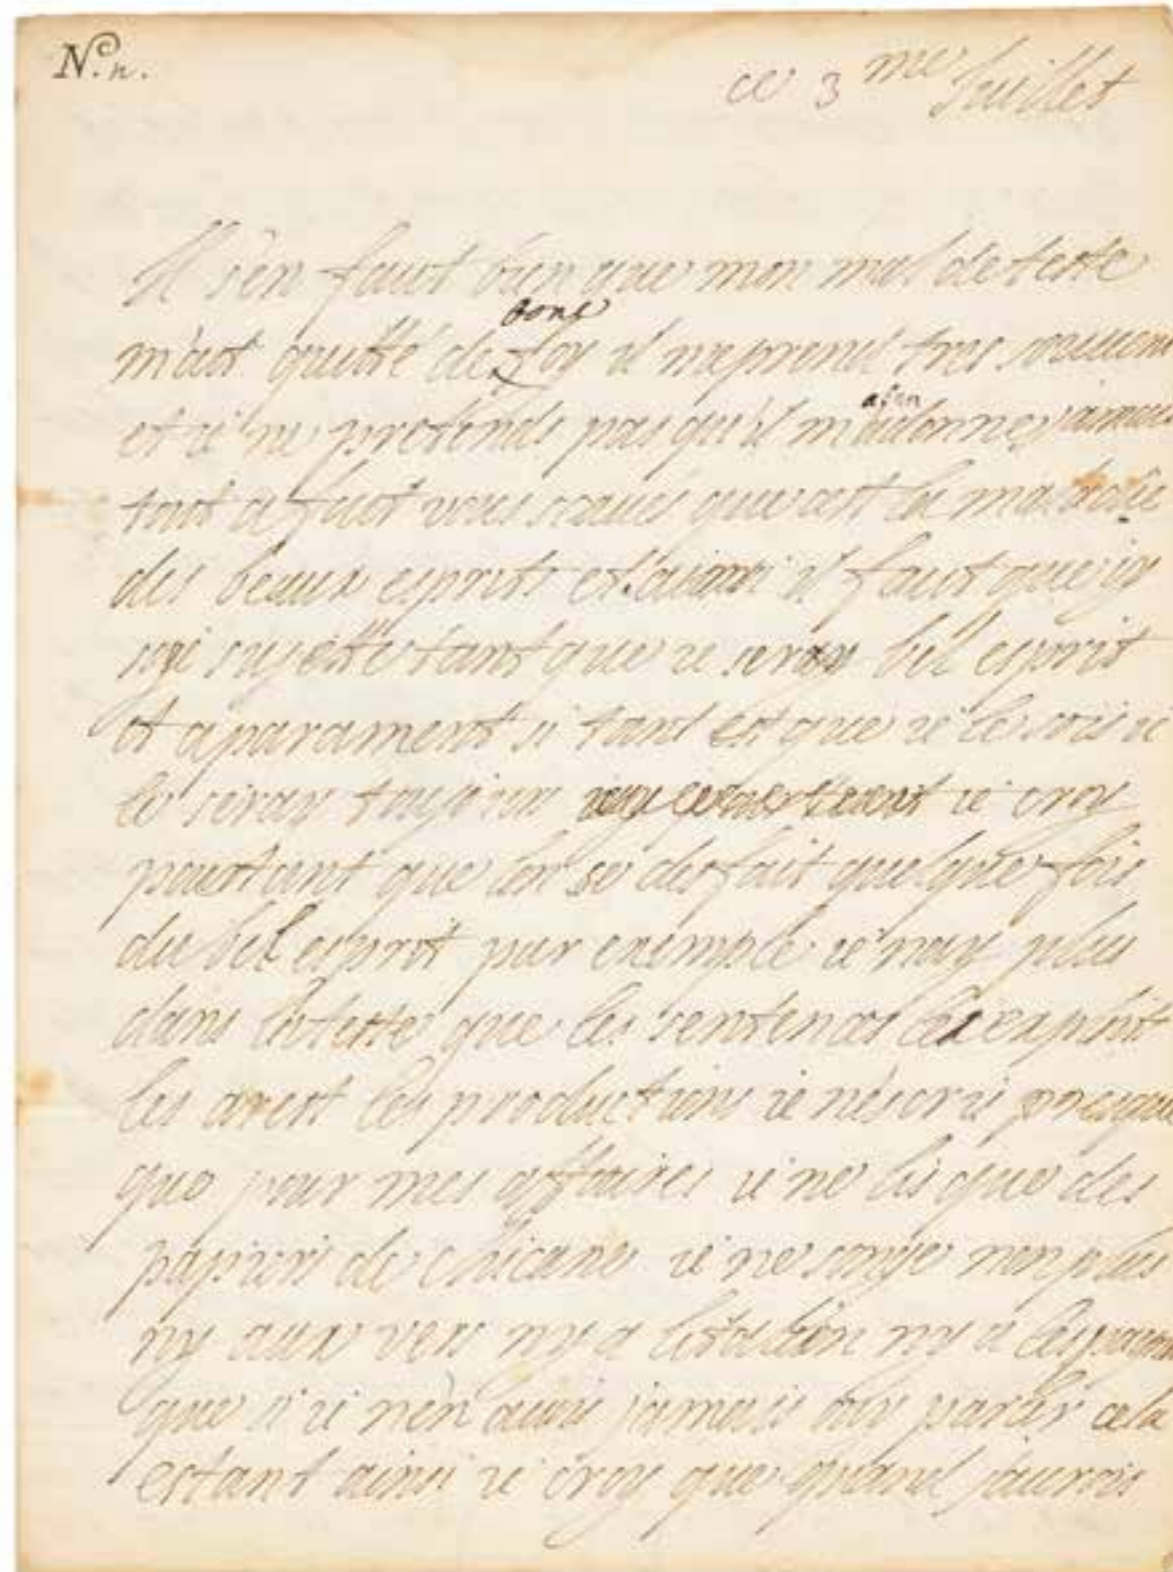 N.º n.
ce 3 me Juillet
Il s'en faut bien que mon mal de teste
m'ait quitté de bone foy il me prend tres souuent
et ie ne pretends pas qu'il m'abandonne iamais
tout a fait vous scaués que cest la maladie
des beaux esprits et ainsi il faut que iy
sois sujette tant que ie seray bel esprit
et aparament si tant est que ie le sois ie
le seray toujours ie croy
pourtant que lon se desfait quelque fois
du bel esprit par exemple ie nay plus
dans la teste que les sentences les exploit
les arest les productions ie nescris presque
que pour mes affaires ie ne lis que des
papiers de chicane ie ne songe non plus
ny aux vers ny a litalien ny a lespagnol
que si ie nen auois jamais ouy parler cela
estant ainsi ie croy que quand jaurois